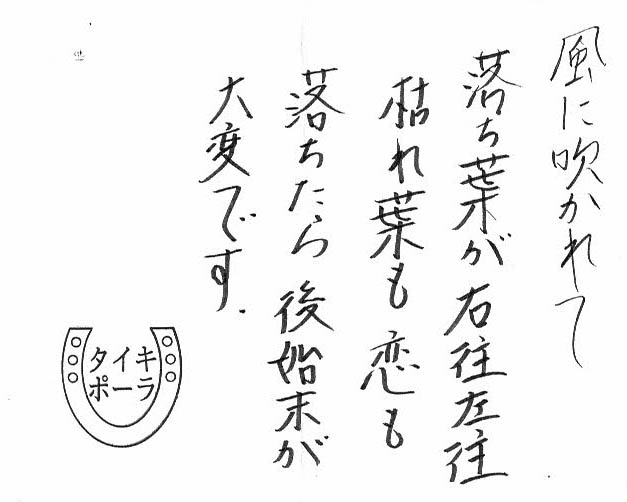 風に吹かれて
落ち葉が右往左往
枯れ葉も恋も
落ちたら後始末が
大変です.
タイキ
ポーラ